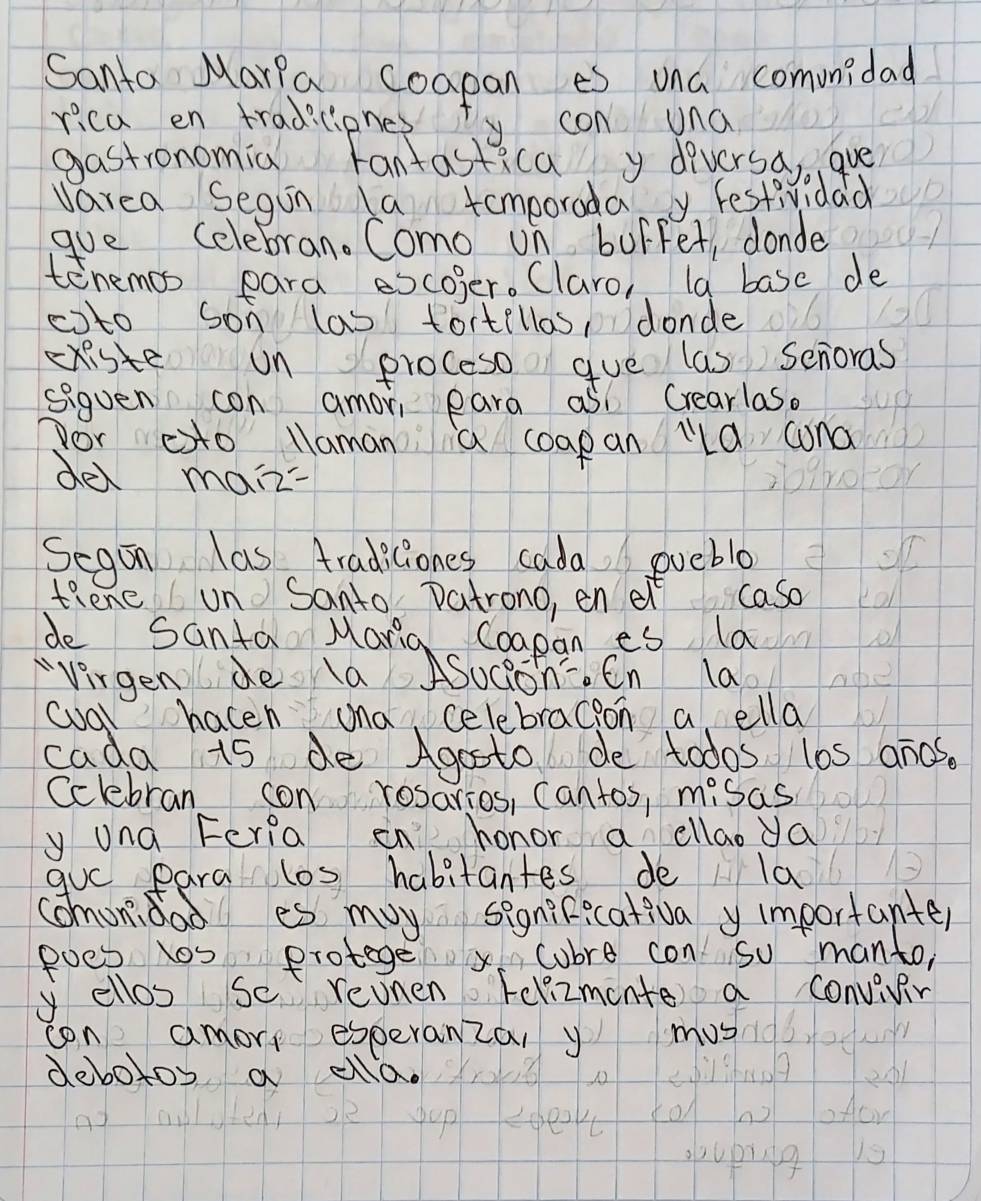 Santa María Coapan es una comunidad
rica en tradiciones y con una
gastronomía fantastica y diversa, que
varea según la temporada y festividad
que celebran. Como un buffet, donde
tenemos para escojer. Claro, la base de
esto son las tortillas, donde
existe un proceso que las señoras
siguen con amor, para así crearlas.
Por esto llaman a coapan "La cuna
del maíz"
Según las tradiciones cada pueblo
tiene un Santo Patrono, en el caso
de Santa María Coapan es la
"Virgen de la Asución". En la
cual hacen una celebración a ella
cada 15 de Agosto de todos los años.
Celebran con rosarios, cantos, misas
y una Feria en honor a ella. Ya
que para los habitantes de la
comunidad es muy significativa y importante,
pues los protege y cubre con su manto,
y ellos se reunen felizmente a convivir
con amor, esperanza, y mus
debotos a ella.